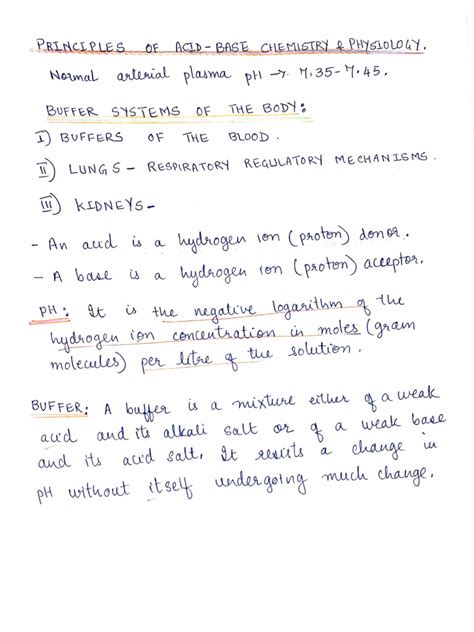 PRINCIPLES OF ACID-BASE CHEMISTRY & PHYSIOLOGY.
Normal arterial plasma pH → 7.35-7.45.
BUFFER SYSTEMS OF THE BODY:
I) BUFFERS OF THE BLOOD.
II) LUNGS - RESPIRATORY REGULATORY MECHANISMS.
III) KIDNEYS-
- An acid is a hydrogen ion (proton) donor.
- A base is a hydrogen ion (proton) acceptor.
PH: It is the negative logarithm of the
hydrogen ion concentration in moles (gram
molecules) per litre of the solution.
BUFFER: A buffer is a mixture either of a weak
acid and its alkali salt or of a weak base
and its acid salt. It resists a change in
pH without itself undergoing much change.